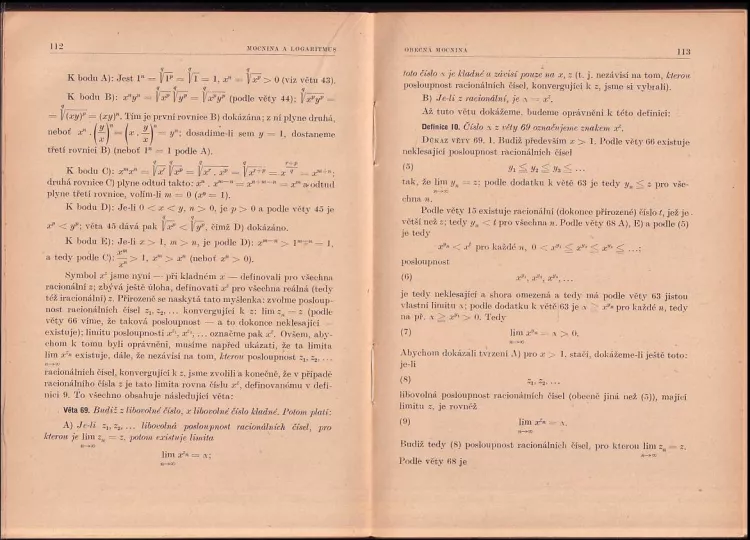 112 MOCNINA A LOGARITMUS
K bodu A): Jest 1ⁿ = \sqrt[q]{1^p} = \sqrt[q]{1} = 1, xⁿ = \sqrt[q]{x^p} > 0 (viz větu 43).
K bodu B): xⁿyⁿ = \sqrt[q]{x^p} \sqrt[q]{y^p} = \sqrt[q]{x^p y^p} (podle věty 44); \sqrt[q]{x^p y^p} =
= \sqrt[q]{(xy)^p} = (xy)ⁿ. Tím je první rovnice B) dokázána; z ní plyne druhá,
neboť xⁿ . (y/x)ⁿ = (x . y/x)ⁿ = yⁿ; dosadíme-li sem y = 1, dostaneme
třetí rovnici B) (neboť 1ⁿ = 1 podle A).
K bodu C):
druhá rovnice C) plyne odtud takto: xⁿ . x^{m−n} = x^{n+m−n} = x^m a odtud
plyne třetí rovnice, volím-li m = 0 (x⁰ = 1).
K bodu D): Je-li 0 < x < y, n > 0, je p > 0 a podle věty 45 je
x^p < y^p; věta 45 dává pak \sqrt[q]{x^p} < \sqrt[q]{y^p}, čímž D) dokázáno.
K bodu E): Je-li x > 1, m > n, je podle D): x^{m−n} > 1^{m−n} = 1,
a tedy podle C): x^m/xⁿ > 1, x^m > xⁿ (neboť xⁿ > 0).
Symbol x^z jsme nyní — při kladném x — definovali pro všechna
racionální z; zbývá ještě úloha, definovati x^z pro všechna reálná (tedy
též iracionální) z. Přirozeně se naskytá tato myšlenka: zvolme posloup-
nost racionálních čísel z₁, z₂, ... konvergující k z: lim zₙ = z (podle
věty 66 víme, že taková posloupnost — a to dokonce neklesající —
existuje); limitu posloupnosti x^{z₁}, x^{z₂}, ... označme pak x^z. Ovšem, aby-
chom k tomu byli oprávněni, musíme napřed ukázati, že ta limita
lim x^{zₙ} existuje, dále, že nezávisí na tom, kterou posloupnost z₁, z₂, ...
n→∞
racionálních čísel, konvergující k z, jsme zvolili a konečně, že v případě
racionálního čísla z je tato limita rovna číslu x^z, definovanému v defi-
nici 9. To všechno obsahuje následující věta:
Věta 69. Budiž z libovolné číslo, x libovolné číslo kladné. Potom platí:
A) Je-li z₁, z₂, ... libovolná posloupnost racionálních čísel, pro
kterou je lim zₙ = z, potom existuje limita
n→∞
lim x^{zₙ} =
n→∞
OBECNÁ MOCNINA 113
toto číslo je kladné a závisí pouze na x, z (t. j. nezávisí na tom, kterou
posloupnost racionálních čísel, konvergující k z, jsme si vybrali).
B) Je-li z racionální, je = x^z.
Až tuto větu dokážeme, budeme oprávněni k této definici:
Definice 10. Číslo z věty 69 označujeme znakem x^z.
DŮKAZ VĚTY 69. I. Budiž především x > 1. Podle věty 66 existuje
neklesající posloupnost racionálních čísel
(5) y₁ ≦ y₂ ≦ y₃ ≦ ...
tak, že lim yₙ = z; podle dodatku k větě 63 je tedy yₙ ≦ z pro vše-
n→∞
chna n.
Podle věty 15 existuje racionální (dokonce přirozené) číslo t, jež je
větší než z; tedy yₙ < t pro všechna n. Podle věty 68 A), E) a podle (5)
je tedy
x^{yₙ} < x^t pro každé n, 0 < x^{y₁} ≦ x^{y₂} ≦ x^{y₃} ≦ ...;
posloupnost
(6) x^{y₁}, x^{y₂}, x^{y₃}, ...
je tedy neklesající a shora omezená a tedy má podle věty 63 jistou
vlastní limitu ; podle dodatku k větě 63 je ≧ x^{yₙ} pro každé n, tedy
na př. ≧ x^{y₁} > 0. Tedy
(7) lim x^{yₙ} = > 0.
n→∞
Abychom dokázali tvrzení A) pro x > 1, stačí, dokážeme-li ještě toto:
je-li
(8) z₁, z₂, ...
libovolná posloupnost racionálních čísel (obecně jiná než (5)), mající
limitu z, je rovněž
(9) lim x^{zₙ} =
n→∞
Budiž tedy (8) posloupnost racionálních čísel, pro kterou lim zₙ = z.
n→∞
Podle věty 68 je